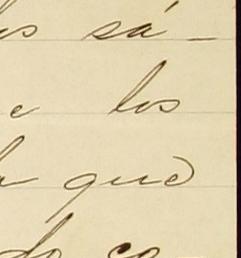 os sá-
e los
a que
do co